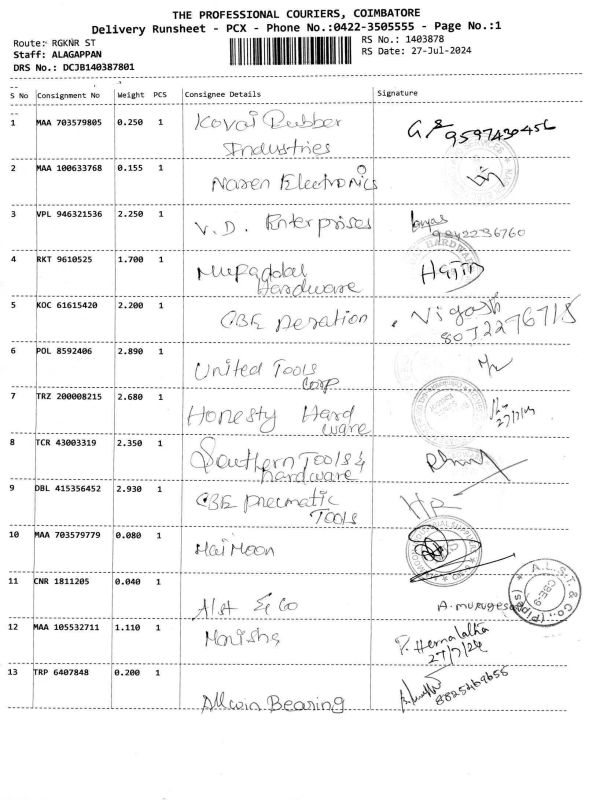 THE PROFESSIONAL COURIERS, COIMBATORE
Delivery Runsheet - PCX - Phone No.:0422-3505555 - Page No.:1
Route: RGKNR ST
RS No.: 1403878
Staff: ALAGAPPAN
RS Date: 27-Jul-2024
DRS No.: DCJB140387801
S No Consignment No Weight PCS Consignee Details Signature
1 MAA 703579805 0.250 1 Kovai Rubber
Industries
9597430456
2 MAA 100633768 0.155 1 Naren Electronics
3 VPL 946321536 2.250 1 V.D. Enterprises
9842236760
4 RKT 9610525 1.700 1 Mufaddal
Hardware
HARDWARE
5 KOC 61615420 2.200 1 CBE Aeration
Vigash
8072276718
6 POL 8592406 2.890 1 United Tools
Corp
7 TRZ 200008215 2.680 1 Honesty Hard
ware
27/7/24
8 TCR 43003319 2.350 1 Southern Tools &
hardware
9 DBL 415356452 2.930 1 CBE pneumatic
Tools
10 MAA 703579779 0.080 1 Mai Moon
11 CNR 1811205 0.040 1 Alst & Co
A. murugesa
A.L.S.T. & Co., (Pipes)
CBE-9
12 MAA 105532711 1.110 1 Manisha
P. Hemalatha
27/7/24
13 TRP 6407848 0.200 1 Allwin Bearing
8825469655